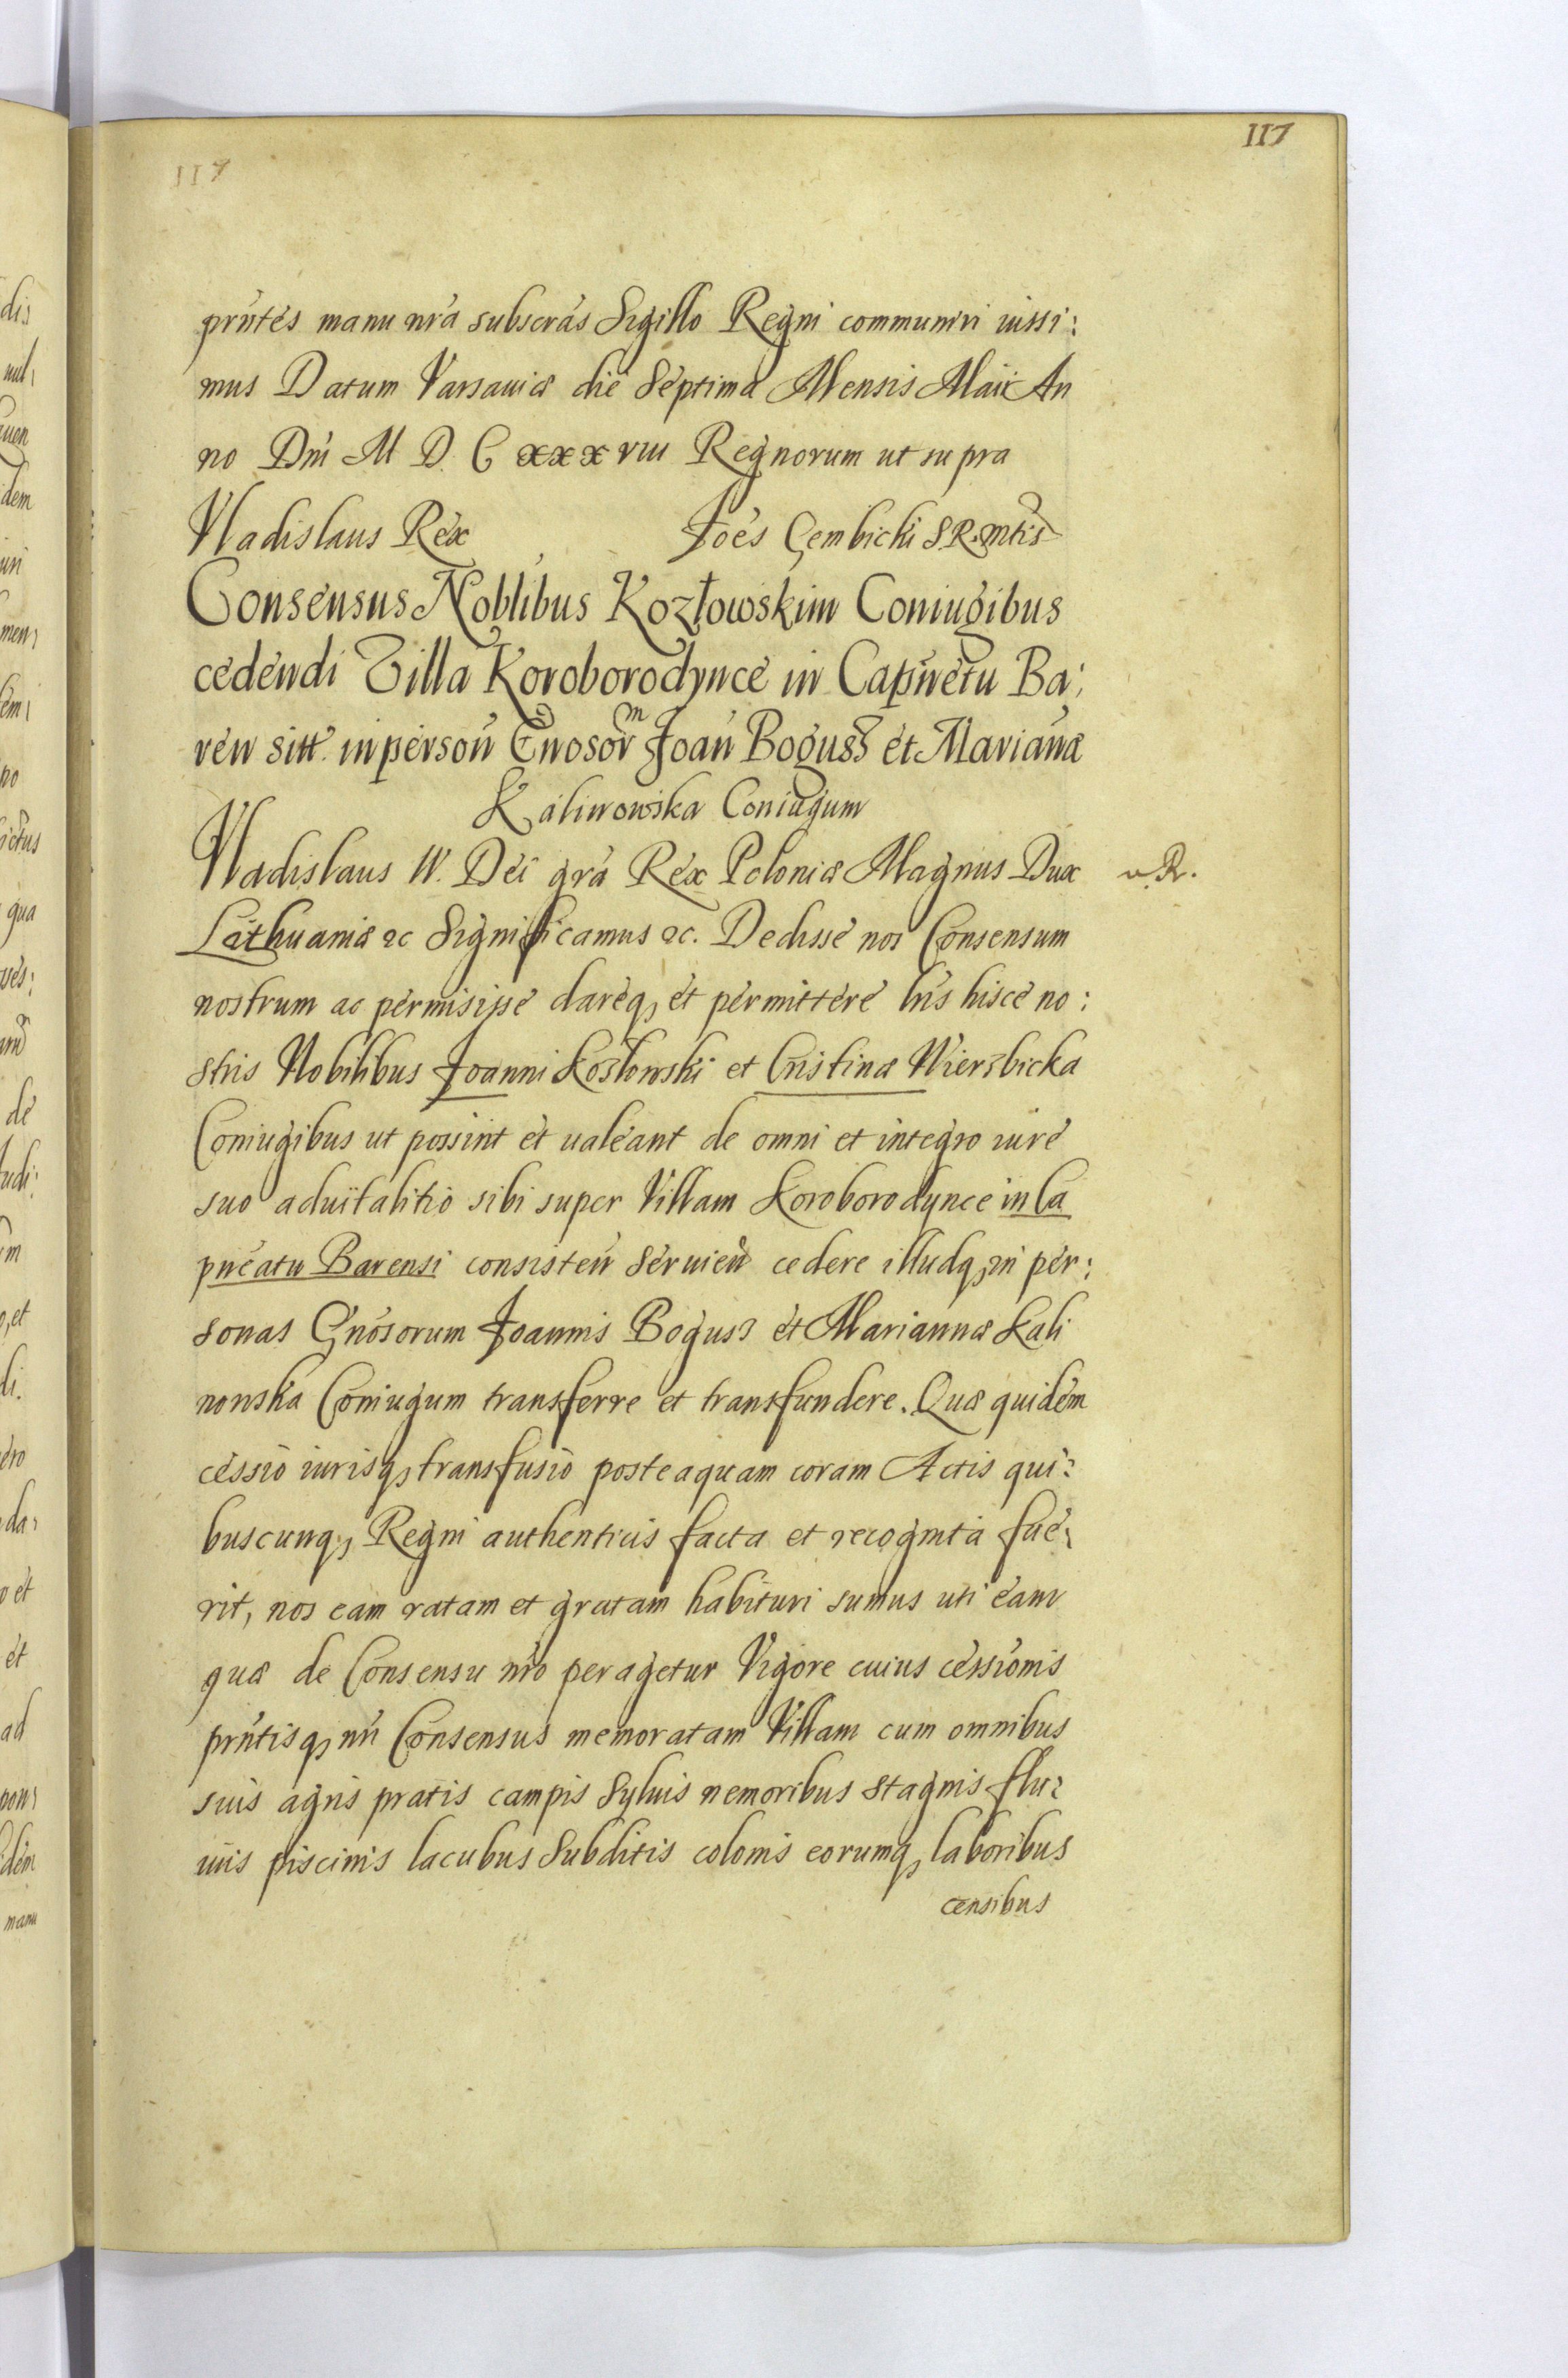 117
117
prńtes manu nrá subscrás Sigillo Regni communiri iussi:
mus Datum Varsauiæ die Septima Mensis Maii An
no Dni M D. C xxxviii Regnorum ut supra
Vladislaus Rex Joes Gembicki S.R. Mtis
Consensus Noblibus Kozłowskim Coniugibus
cedendi Villa Koroborodynce in Capńetu Ba:
ren sitt. in person Gnosorm Joan Bogusz et Marianæ
Kalinowska Coniugum
Vladislaus IV. Dei grá Rex Poloniæ Magnus Dux
n. R.
Lithuaniæ &c Significamus &c. Dedisse nos Consensum
nostrum ac permisisse dareq, et permittere lris hisce no:
stris Nobilibus Joanni Koslowski et Cristinæ Wierzbicka
Coniugibus ut possint et ualeant de omni et integro iure
suo aduitalitio sibi super Villam Koroborodynce in Ca
pneatu Barensi consisten seruien cedere illudq, in per:
sonas Gnosorum Joannis Bogusz et Mariannæ Kali
nowska Coniugum transferre et transfundere. Quæ quidem
cessio iurisq, transfusio posteaquam coram Actis qui:
buscunq, Regni authenticis facta et recognita fue:
rit, nos eam ratam et gratam habituri sumus uti eam
quæ de Consensu nro peragetur Vigore cuius cessionis
prńtisq, nri Consensus memoratam Villam cum omnibus
suis agris pratis campis Syluis nemoribus stagnis flu:
uiis piscinis lacubus Subditis colonis eorumq, laboribus
censibus